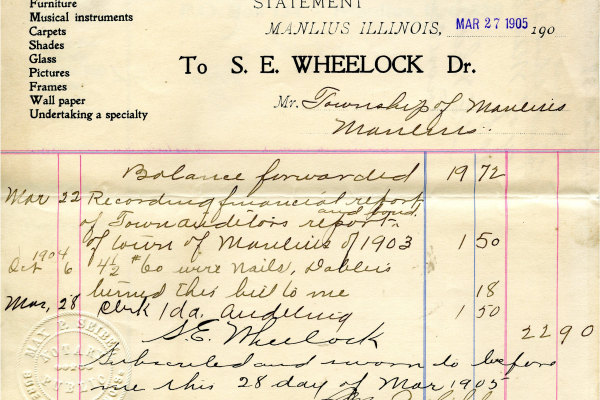 Furniture
Musical instruments
Carpets
Shades
Glass
Pictures
Frames
Wall paper
Undertaking a specialty
STATEMENT
MANLIUS ILLINOIS, MAR 27 1905 190
To S. E. WHEELOCK Dr.
Mr. Township of Manlius
Manlius
Balance forwarded 19 72
Mar 22 Recording financial report
and bond
of Town auditors report
of town of Manlius of 1903 1 50
1904
Oct 6 4½ # 60 wire nails, Dablers
turned this bill to me 18
Mar, 28 Clerk 1 da. Auditing 1 50
S. E. Wheelock 22 90
Subscribed and sworn to before
me this 28 day of Mar 1905
NOTARY
PUBLIC